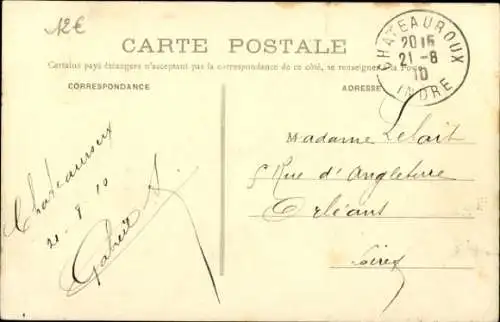 12€
CARTE POSTALE
Certains pays étrangers n'acceptant pas la correspondance de ce côté, se renseigner à la Poste
CORRESPONDANCE
ADRESSE
CHATEAUROUX
2015
21-8
10
INDRE
Chateauroux
21. 8 10
Madame
5 Rue d'Angleterre
Orléans